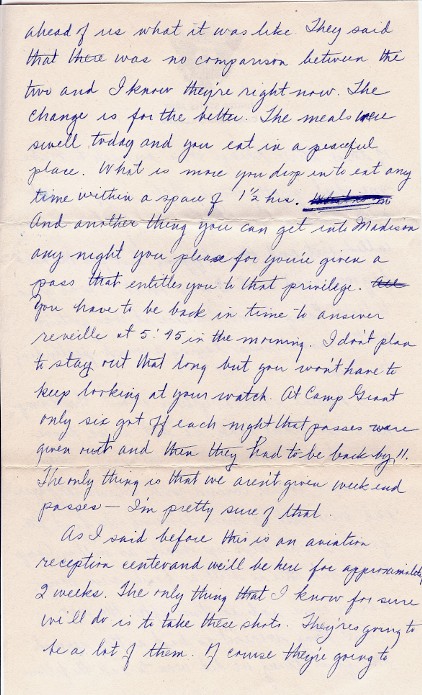 ahead of us what it was like. They said
that there was no comparison between the
two and I know they're right now. The
change is for the better. The meals were
swell today and you eat in a peaceful
place. What is more you drop in to eat any
time within a space of 1½ hrs.
And another thing you can get into Madison
any night you please for you're given a
pass that entitles you to that privilege. All
You have to be back in time to answer
reveille at 5:45 in the morning. I don't plan
to stay out that long but you won't have to
keep looking at your watch. At Camp Grant
only six got off each night that passes were
given out and then they had to be back by 11.
The only thing is that we aren't given week end
passes — I'm pretty sure of that.
As I said before this is an aviation
reception center and we'll be here for approximately
2 weeks. The only thing that I know for sure
we'll do is to take these shots. They're going to
be a lot of them. Of course they're going to